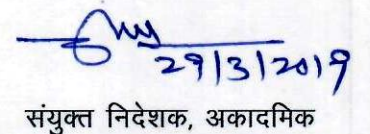 29/3/2019
संयुक्त निदेशक, अकादमिक